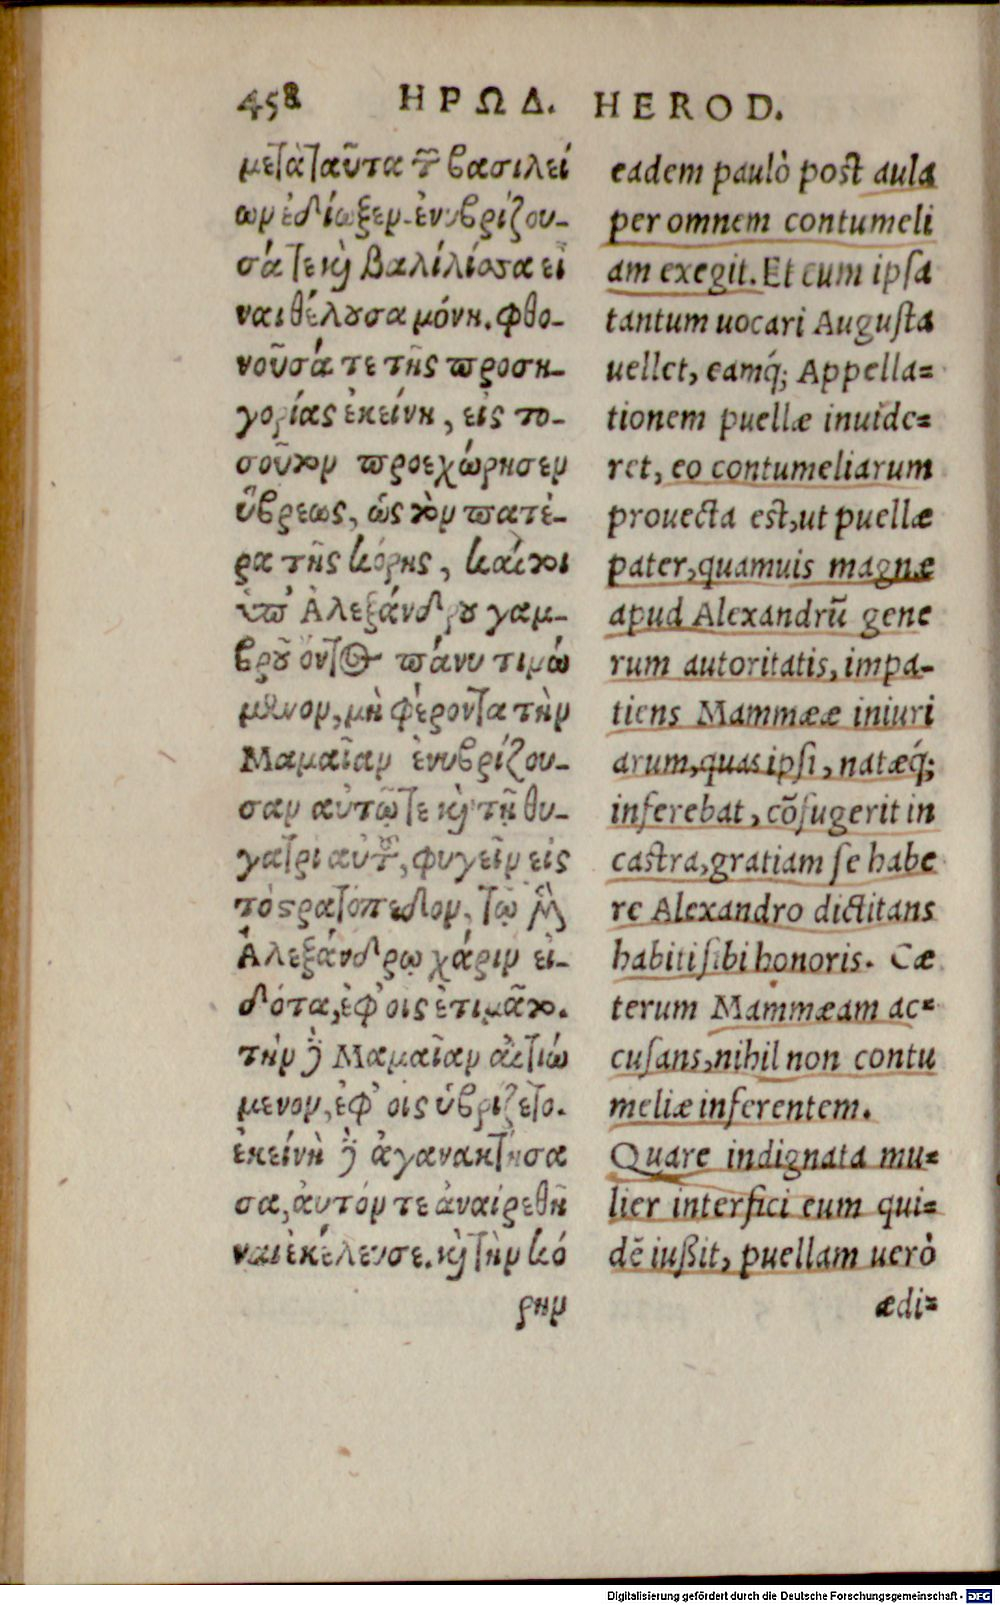 458 ΗΡΩΔ. HEROD.
μετὰ ταῦτα τ͂ βασιλεί
ων ἐδίωξεν. ἐνυβρίζου-
σά τε κỳ βαλίλίσσα εἶ
ναι θέλȣσα μόνη. φθο-
νοῦσά τε τῆς προση-
γορίας ἐκείνη, εἰς το-
σοῦτον προεχώρησεν
ὕβρεως, ὡς τὸν πατέ-
ρα τῆς κόρης, καίτοι
ὑπ' Ἀλεξάνδρȣ γαμ-
βρȣ͂ ὄντος πάνυ τιμώ
μενον, μὴ φέροντα τὴν
Μαμαῖαν ἐνυβρίζου-
σαν αὐτῷ τε κỳ τῇ θυ-
γατρὶ αὐτȣ͂, φυγεῖν εἰς
τὸ στρατόπεδον, τῷ μ̂
Ἀλεξάνδρῳ χάριν εἰ-
δότα, ἐφ' οἷς ἐτιμᾶτο.
τὴν ȷ̀ Μαμαῖαν αἰτιώ
μενον, ἐφ' οἷς ὑβρίζετο.
ἐκείνὴ ȷ̀ ἀγανακτήσα
σα, ἀυτόν τε ἀναίρεθῆ
ναι ἐκέλευσε. κỳ τὴν κό
ρην
eadem paulò post aula
per omnem contumeli
am exegit. Et cum ipsa
tantum uocari Augusta
uellet, eamq́; Appella=
tionem puellæ inuide=
ret, eo contumeliarum
prouecta est, ut puellæ
pater, quamuis magnæ
apud Alexandrū gene
rum autoritatis, impa-
tiens Mammææ iniuri
arum, quas ipsi, natæq́;
inferebat, cōfugerit in
castra, gratiam se habe
re Alexandro dictitans
habiti sibi honoris. Cæ
terum Mammæam ac=
cusans, nihil non contu
meliæ inferentem.
Quare indignata mu=
lier interfici eum qui=
dē iußit, puellam uerò
ædi=
Digitalisierung gefördert durch die Deutsche Forschungsgemeinschaft - DFG